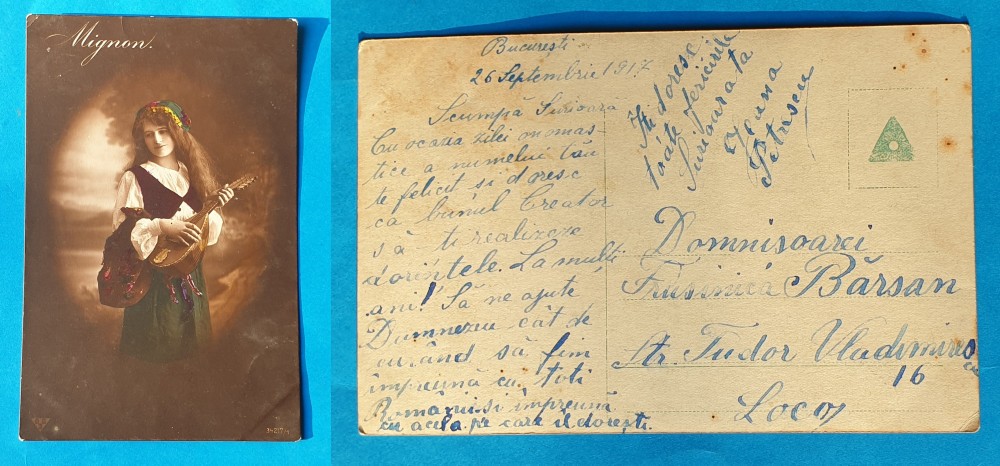 Mignon.
București
26 Septembrie 1917
Scumpă Surioară
Cu ocazia zilei onomas
tice a numelui tău
te felicit și doresc
ca bunul Creator
să ți realizeze
dorințele. La mulți
ani! Să ne ajute
Dumnezeu cât de
curând să fim
împreună cu toți
Românii și împreună
cu acela pe care îl dorești.
Iți doresc
toate fericirile
Surioara ta
Petrescu
Domnișoarei
Frusinica Bârsan
Str. Tudor Vladimires
cu
16
Loco